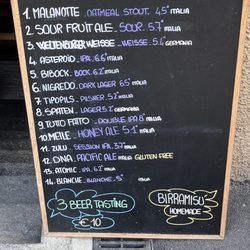 1. MALANOTTE. OATMEAL STOUT. 4,5° ITALIA
2 SOUR FRUIT ALE. SOUR. 5.7° ITALIA
3. WELTENBURGER WEISSE. WEISSE. 5.4° GERMANIA
4. ASTEROID. IPA. 6.6° ITALIA
5. BIBOCK. BOCK. 6.2° ITALIA
6. NIGREDO. DARK LAGER 6.5° ITALIA
7. TIPOPILS. PILSNER. 5.2° ITALIA
8. SPATEN. LAGER 5.2° GERMANIA
9. TUTTO FATTO. DOUBLE IPA 8° ITALIA
10. MEILE. HONEY ALE 5.1° ITALIA
11. ZULU. SESSION IPA. 3.7° ITALIA
12. DNA. PACIFIC ALE ITALIA GLUTEN FREE
13. ATOMIC. 6.1° ITALIA
14. BLANCHE. BLANCHE. 5° ITALIA
3 BEER TASTING
€ 10
BIRRAMISÙ
HOMEMADE